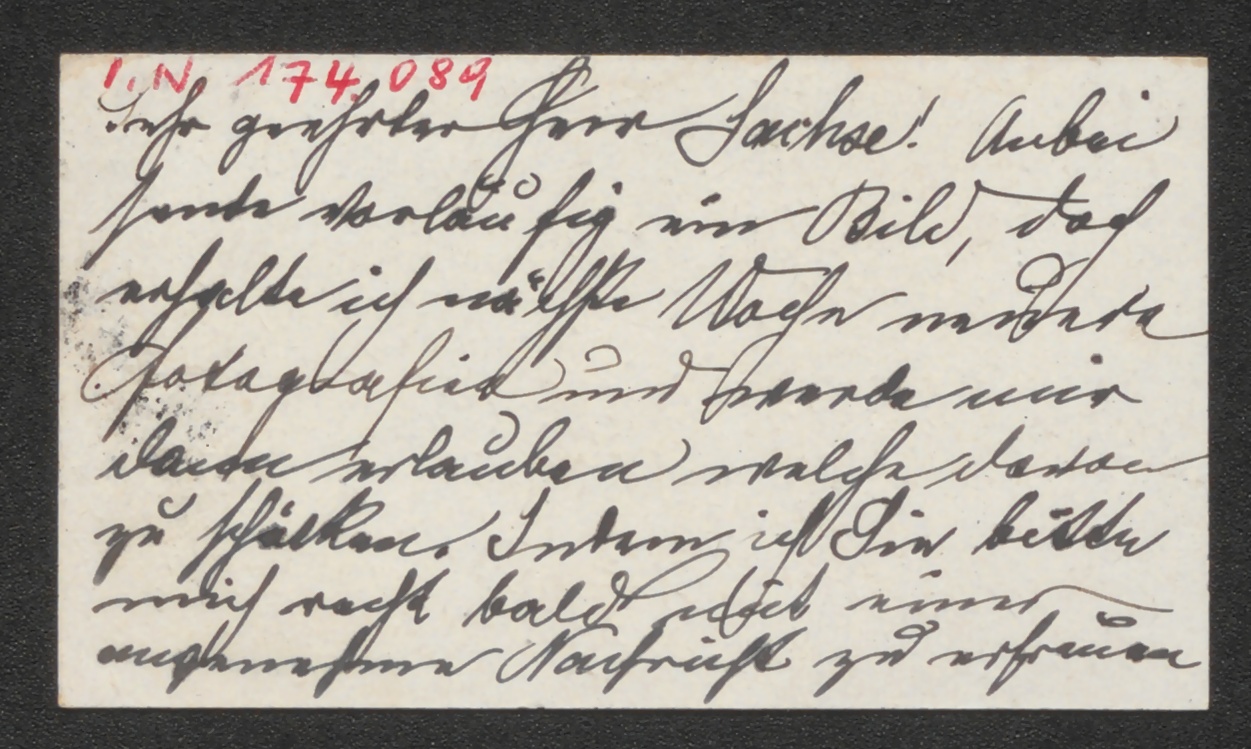 I.N. 174.089
Sehr geehrter Herr Sachse! Anbei
sende vorläufig ein Bild, doch
erhalte ich nächste Woche neuere
Fotografien und werde mir
dann erlauben welche davon
zu schicken. Indem ich Sie bitte
mich recht bald mit einer
angenehme Nachricht zu erfreuen